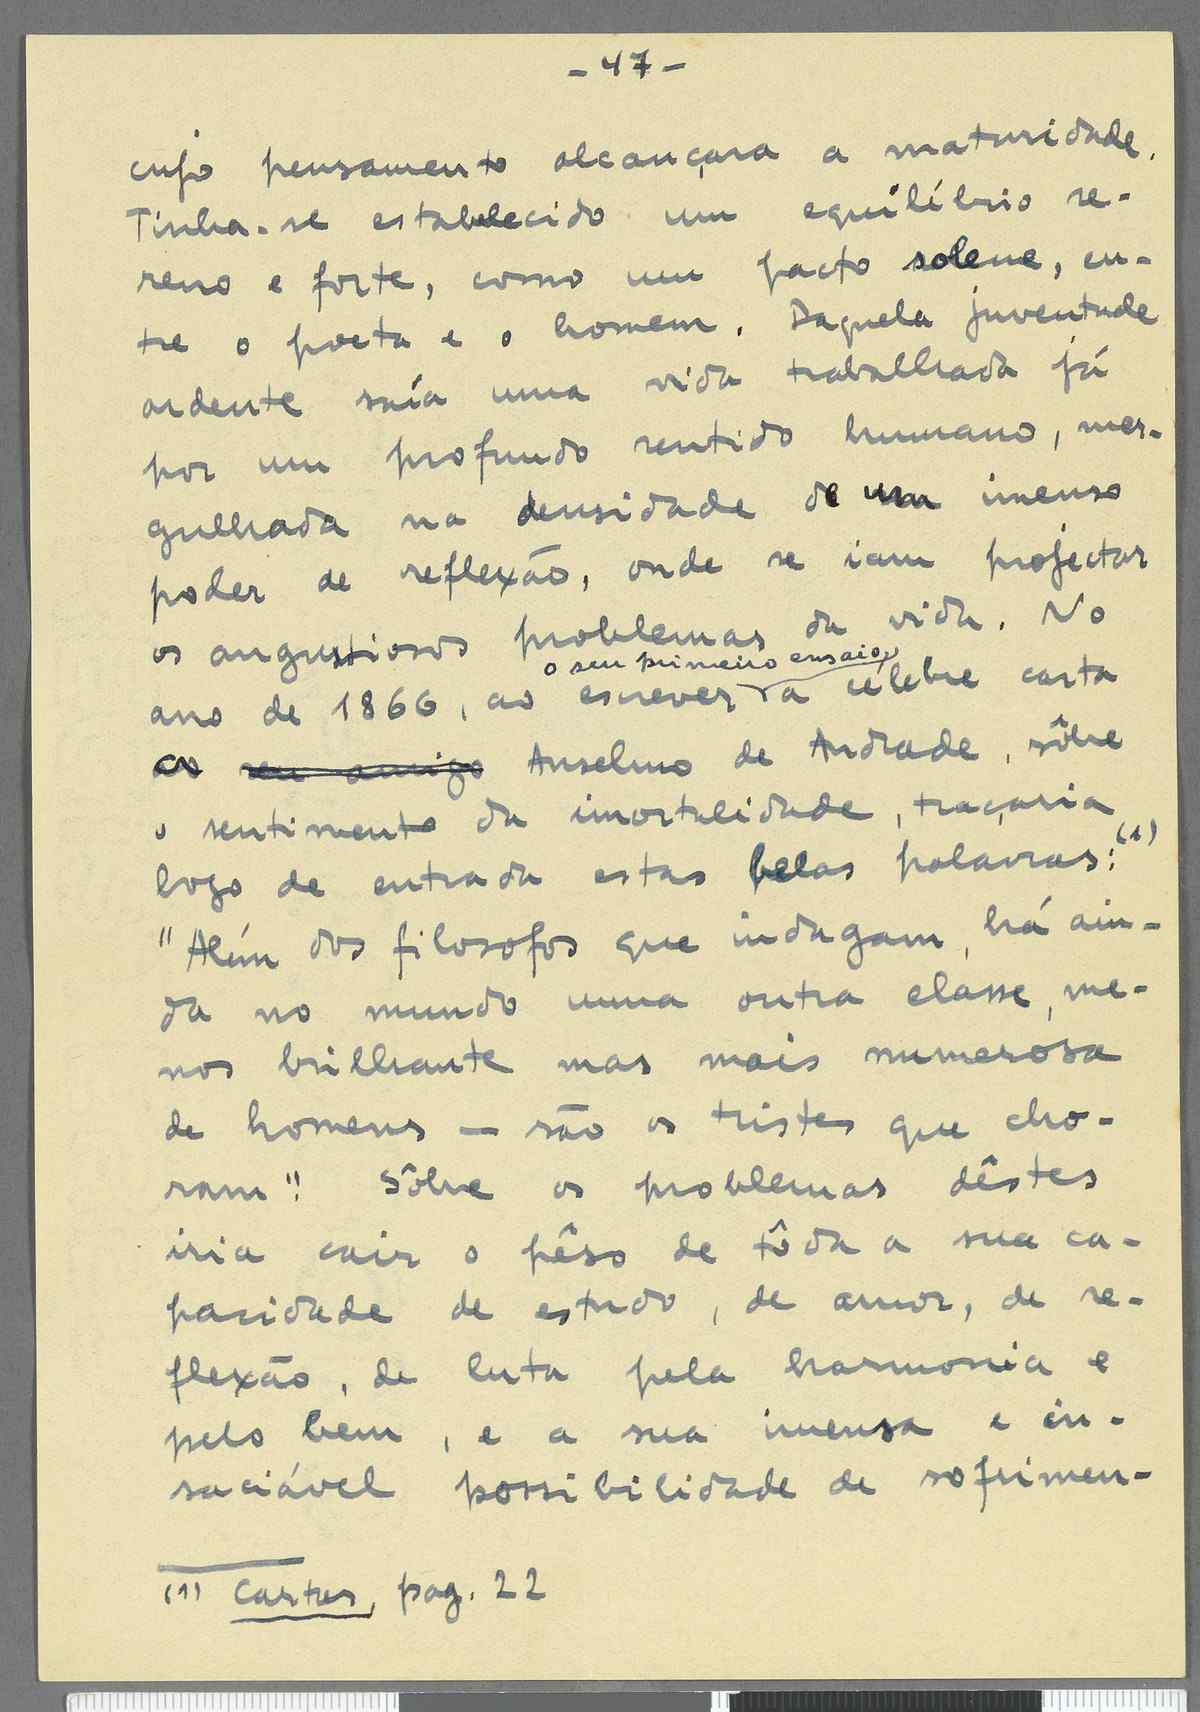 - 47 -
cujo pensamento alcançara a maturidade.
Tinha-se estabelecido um equilíbrio se-
reno e forte, como um pacto solene, en-
tre o poeta e o homem. Daquela juventude
ardente saía uma vida trabalhada já
por um profundo sentido humano, mer-
gulhada na densidade de um imenso
poder de reflexão, onde se iam projectar
os angustiosos problemas da vida. No
o seu primeiro ensaio,
ano de 1866, ao escrever a célebre carta
ao seu amigo Anselmo de Andrade, sôbre
o sentimento da imortalidade, traçaria
logo de entrada estas belas palavras:(1)
"Além dos filosofos que indagam, há ain-
da no mundo uma outra classe, me-
nos brilhante mas mais numerosa
de homens — são os tristes que cho-
ram". Sôbre os problemas dêstes
iria cair o pêso de tôda a sua ca-
pacidade de estudo, de amor, de re-
flexão, de luta pela harmonia e
pelo bem, e a sua imensa e in-
saciável possibilidade de sofrimen-
(1) Cartas, pag. 22